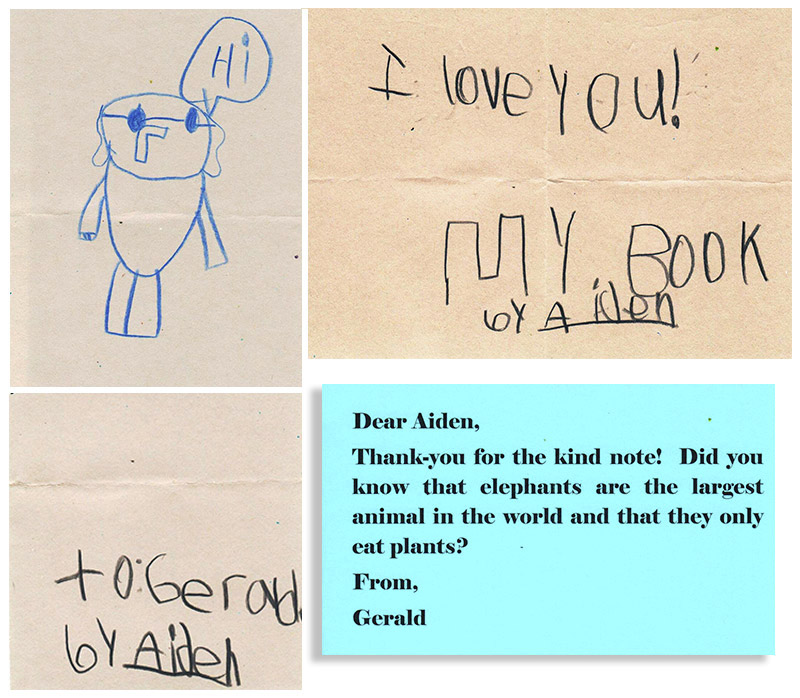 Hi
I love you!
MY BOOK
by Aiden
to: Gerald
by Aiden
Dear Aiden,
Thank-you for the kind note! Did you
know that elephants are the largest
animal in the world and that they only
eat plants?
From,
Gerald